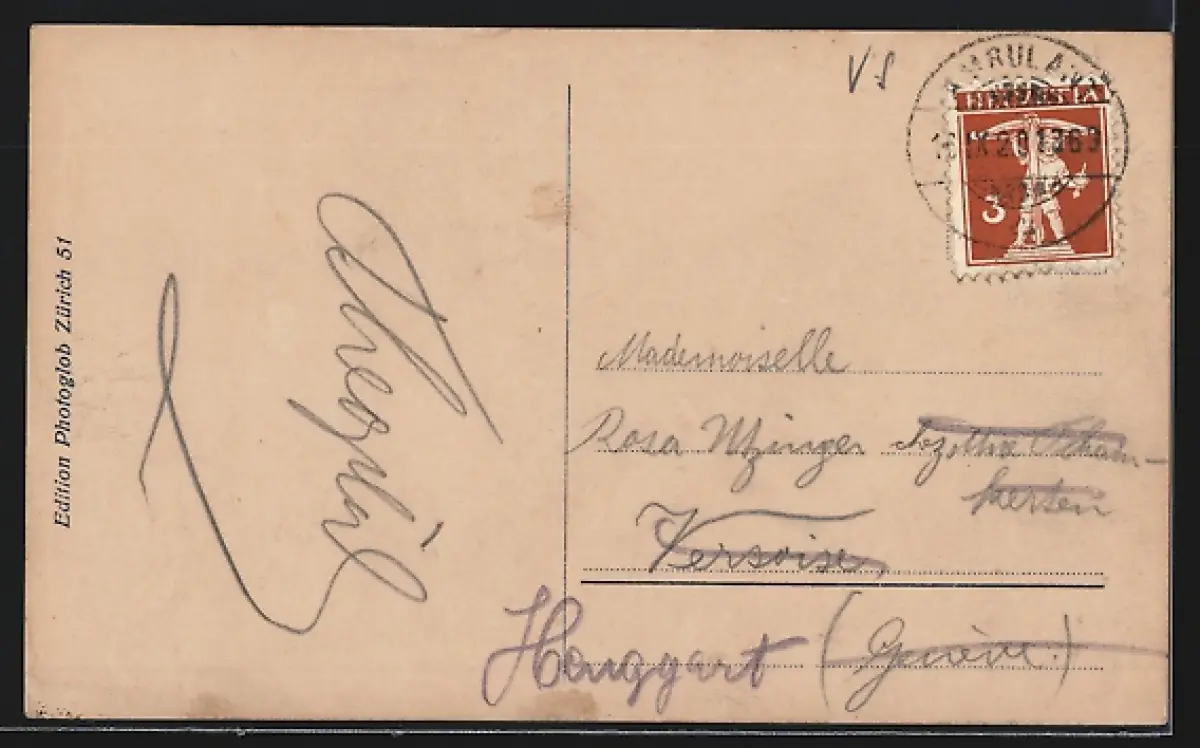 Edition Photoglob Zürich 51
Théophil
VS
AMBULANT
HELVETIA
IX 20 1363
3
Mademoiselle
Rosa Utzinger
Versoix
Henggart (Genève.)